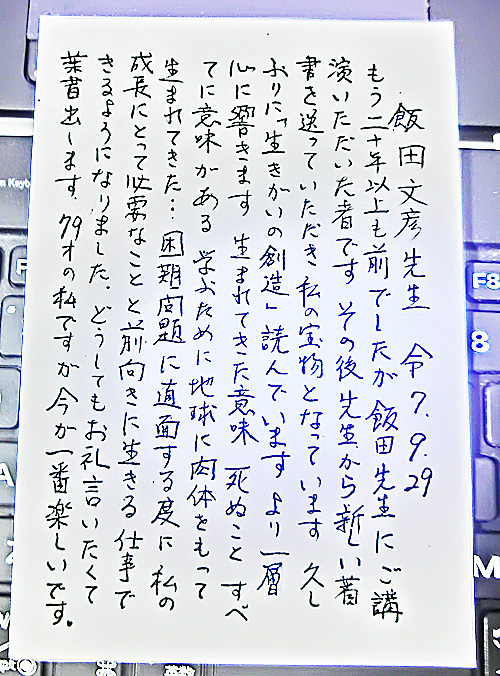 飯田文彦先生 令7.9.29
もう二十年以上も前でしたが飯田先生にご講
演いただいた者です その後先生から新しい著
書を送っていただき私の宝物となっています 久し
ぶりに「生きがいの創造」読んでいます より一層
心に響きます 生まれてきた意味 死ぬこと すべ
てに意味がある 学ぶために地球に肉体をもって
生まれてきた… 困難問題に直面する度に 私の
成長にとって必要なことと前向きに生きる 仕事で
きるようになりました、どうしてもお礼言いたくて
葉書出します、79才の私ですが今が一番楽しいです。
F8
8
M
A